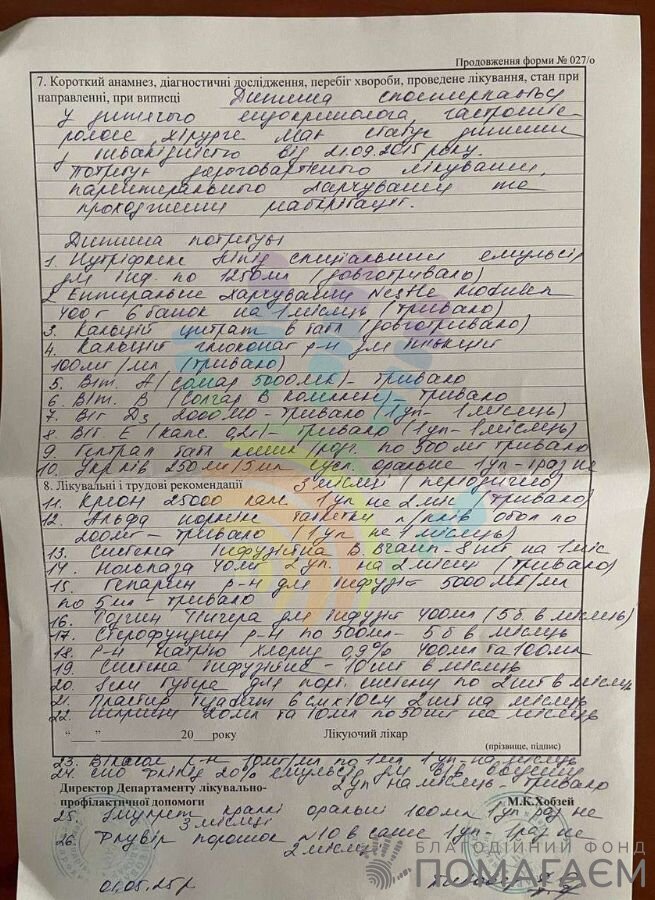 Продовження форми № 027/о
7. Короткий анамнез, діагностичні дослідження, перебіг хвороби, проведене лікування, стан при
направленні, при виписці Дитина спостерігається
у дитячого ендокринолога, гастроенте-
ролога, хірурга. Має статус дитини
з інвалідністю від 21.09.2015 року.
Потребує дороговартісного лікування,
парентерального харчування та
проходження реабілітації.
Дитина потребує
1. Нутріфлекс Ліпід спеціальний емульсія
для інф. по 1250мл (довготривало)
2. Ентеральне харчування Nestle Modulen
400г 6 банок на 1 місяць (тривало)
3. Кальцій цитрат в табл (довготривало)
4. Кальцій глюконат р-н для інʼєкцій
100мг/мл (тривало)
5. Віт. А (солгар 5000МО) - тривало
6. Віт. В (Солгар В комплекс) - тривало
7. Віт Д3 2000МО - тривало (1уп - 1місяць)
8. Віт. Е (капс. 0,2г) - тривало (1уп - 1місяць)
9. табл по 500мг тривало
10. Укрлів 250мг/5мл сусп. оральне 1уп - 1раз на
8. Лікувальні і трудові рекомендації 3 місяці (періодично)
11. Креон 25000 капс. 1уп на 2 міс (тривало)
12. Альфа нормікс таблетки п/плів обол по
200мг - тривало (1уп на 1місяць)
13. Система інфузійна В. Браун - 8шт на 1міс
14. Нольпаза 40мг 2уп. на 2місяці (тривало)
15. Гепарин р-н для інфузій 5000МО/мл
по 5мл - тривало
16. Розчин Рінгера для інфузій 400мл (5б. в місяць)
17. Стерофундин р-н по 500мл - 5б в місяць
18. Р-н натрію хлорид 0,9% 400мл та 100мл
19. Система інфузійна - 10шт в місяць
20. Голки Губера для порт. системи по 2шт в місяць
21. Пластир 6см х 10см 2шт на місяць
22. Шприци 20мл та 10мл по 50шт на місяць
“___” ________ 20___року Лікуючий лікар
(прізвище, підпис)
23. р-н 10мг/мл по 1мл 1уп. на місяць
24. 20% емульсія для в/в
2уп на місяць - тривало
Директор Департаменту лікувально-
профілактичної допомоги М.К.Хобзей
25. краплі оральні 100мл 1уп раз на
3 місяці
26. порошок N10 в саше 1уп - 1раз на
2 місяці
01.05.25р.
БЛАГОДІЙНИЙ ФОНД
ПОМАГАЄМ